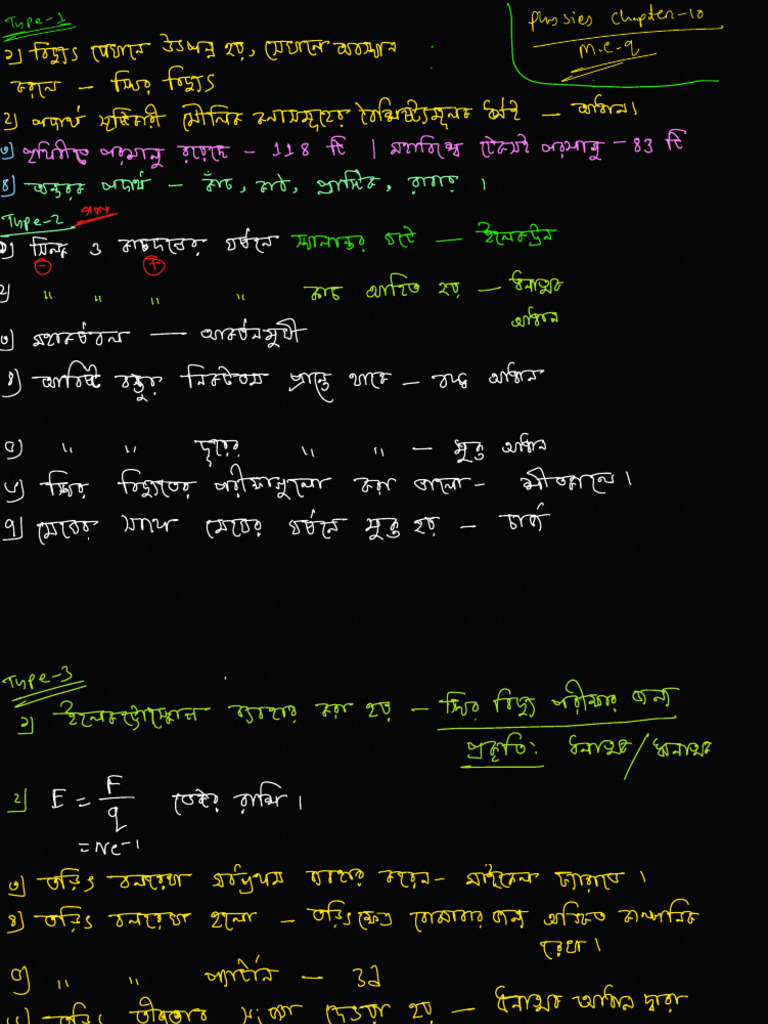 Type-1
Physics Chapter-10
M.C.Q
১) বিদ্যুৎ যেখানে উৎপন্ন হয়, সেখানে অবস্থান
করলে – স্থির বিদ্যুৎ
২) পদার্থ সৃষ্টিকারী মৌলিক কণাসমূহের বৈশিষ্ট্যমূলক ধর্মই – আধান।
৩) পৃথিবীতে পরমাণু রয়েছে – 118 টি | মহাবিশ্বে টেকসই পরমাণু – 83 টি
৪) অন্তরক পদার্থ – কাঁচ, কাঠ, প্লাস্টিক, রাবার ।
Type-2
১) সিল্ক ও কাচদন্ডের ঘর্ষনে স্থানান্তর ঘটে – ইলেকট্রন
- +
২) " " " " কাচ আহিত হয় – ধনাত্মক
আধান
৩) মহাকর্ষবল — আকর্ষনমুখী
৪) আবিষ্ট বস্তুর নিকটতম প্রান্তে থাকে – বদ্ধ আধান
৫) " " দূরের " " – মুক্ত আধান
৬) স্থির বিদ্যুতের পরীক্ষাগুলো করা ভালো – শীতকালে।
৭) মেঘের সাথে মেঘের ঘর্ষনে মুক্ত হয় – চার্জ
Type-3
১) ইলেকট্রোস্কোপ ব্যবহার করা হয় – স্থির বিদ্যুৎ পরীক্ষার জন্য
প্রকৃতি: ধনাত্মক/ঋনাত্মক
২) E = F/q ভেক্টর রাশি ।
= NC-1
৩) তড়িৎ বলরেখা সর্বপ্রথম ব্যবহার করেন – মাইকেল ফ্যারাডে ।
৪) তড়িৎ বলরেখা হলো – তড়িৎক্ষেত্র বোঝাবার জন্য অঙ্কিত কাল্পনিক
রেখা ।
৫) " " প্যাটার্ন – 3d
৬) তড়িৎ তীব্রতার সংজ্ঞা দেওয়া হয় – ধনাত্মক আধান দ্বারা